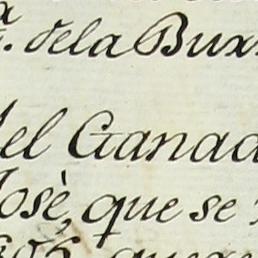 dela Bux
del Ganad
José, que se